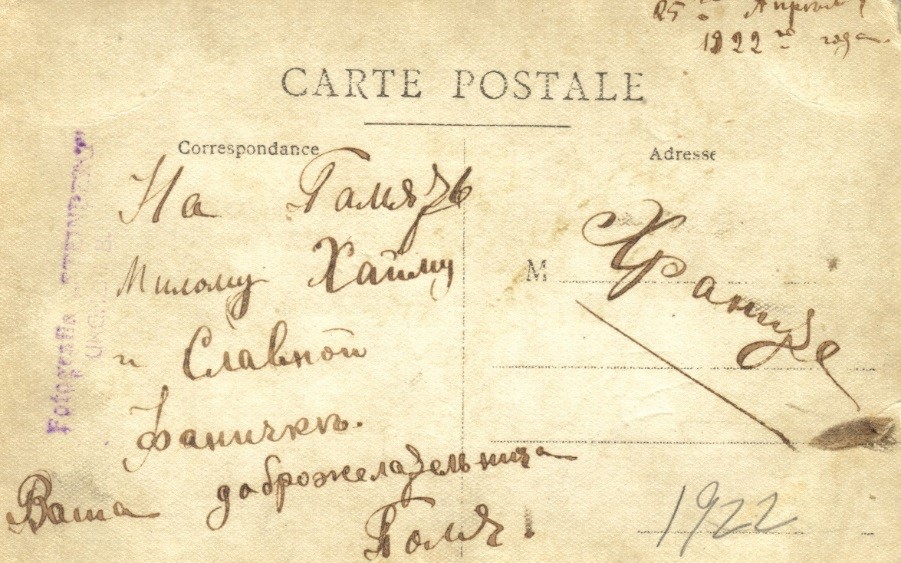 25 го Апреля
1922 го года.
CARTE POSTALE
Correspondance
Adresse
Fotografia
На Память
Милому Хайму
и Славной
Фаничке.
Ваша доброжелательница
Поля!
M
Храните
1922